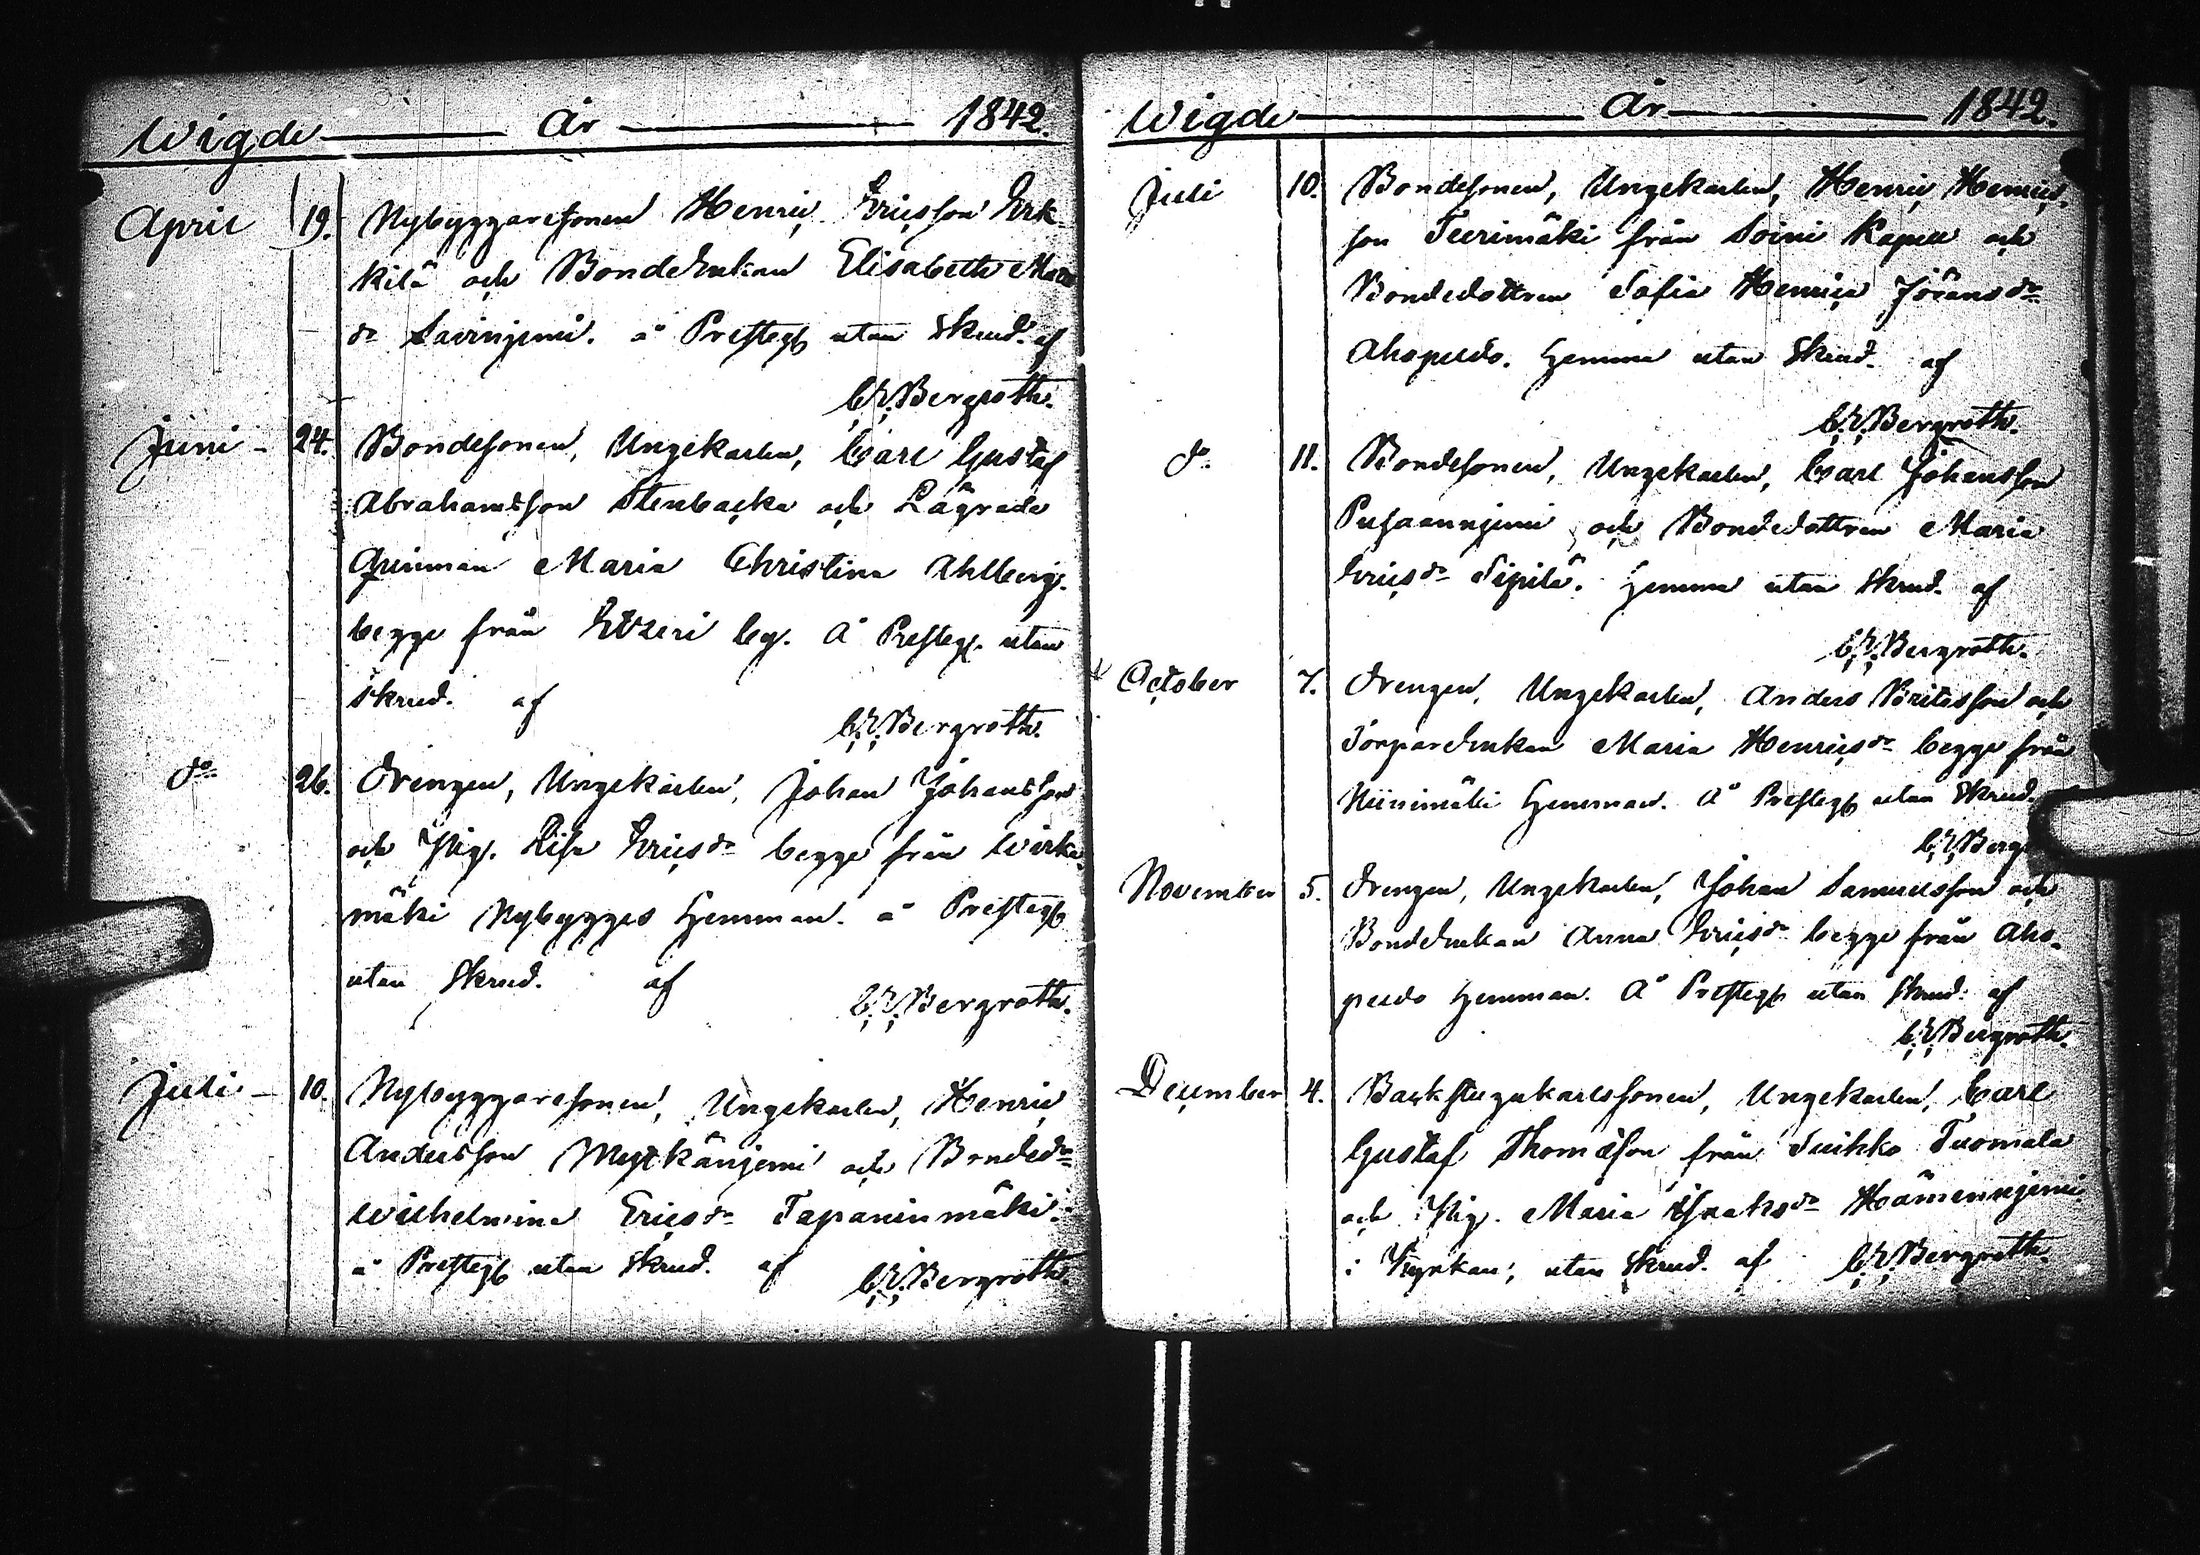 Wigde År 1842.
April 19. Nybyggaresonen Henric Ericsson Erk-
kilä och BondeEnkan Elisabeth Mats
dr Savinjemi. å Presteg utan Skrud. af
C.E. Bergroth.
Juni - 24. Bondesonen, Ungekarlen, Carl Gustaf
Abrahamsson Stenbacka och Lägrade
Qvinman Maria Christina Ahlberg.
begge från Etzeri by. Å Presteg. utan
Skrud. af
C.E. Bergroth.
do 26. Drengen, Ungekarlen, Johan Johansson
och Pig. Lisa Ericsdr begge från Wirka-
mäki Nybygges Hemman. å Presteg
utan Skrud. af
C.E. Bergroth.
Juli - 10. Nybyggaresonen, Ungekarlen, Henric
Andersson Myxkänjemi och Bondedr
Wilhelmina Ericsdr Tapaninmäki.
å Presteg utan Skrud. af C.E. Bergroth.
Wigde År 1842.
Juli 10. Bondesonen, Ungekarlen, Henric Henrics-
son Teerimäki från Soini Kapell och
Bondedottren Sofia Henrica Jöransdr
Ahopelto. Hemma utan Skrud. af
C.E. Bergroth.
do 11. Bondesonen, Ungekarlen, Carl Johansson
Pusaannjemi och Bondedottren Maria
Ericsdr Sipilä. Hemma utan Skrud. af
C.E. Bergroth.
October 7. Drengen, Ungekarlen, Anders Britasson och
TorpareEnkan Maria Henricsdr begge från
Niinimäki Hemman. Å Presteg utan Skrud.
C.E. Berg
November 5. Drengen, Ungekarlen, Johan Samuelsson och
BondeEnkan Anna Ericsdr begge från Aho-
peldo Hemman. Å Presteg utan Skrud. af
C.E. Bergroth.
December 4. Backstugukarlssonen, Ungekarlen, Carl
Gustaf Thomasson från Suikko Tuomala
och Pig. Maria Isaksdr Hämennjemi
i Kyrkan, utan Skrud. af C.E. Bergroth.